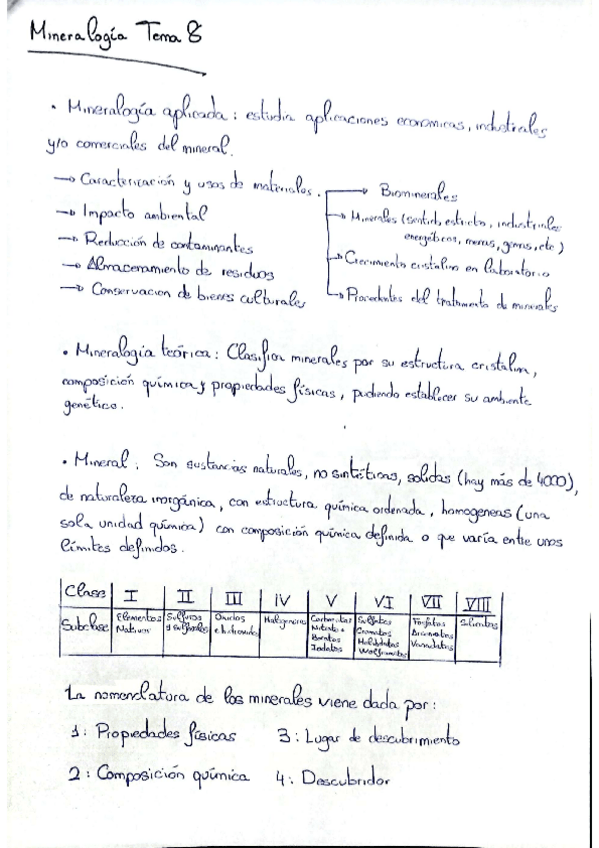 Mineralogía Tema 8
• Mineralogía aplicada: estudia aplicaciones economicas, industriales
y/o comerciales del mineral.
→ Caracterización y usos de materiales.
→ Impacto ambiental
→ Reducción de contaminantes
→ Almacenamiento de residuos
→ Conservacion de bienes culturales
→ Biominerales
→ Minerales (sentido estricto, industriales
energéticos, menas, gemas, etc)
→ Crecimiento cristalino en laboratorio
→ Procedentes del tratamiento de minerales
• Mineralogía teórica: Clasifica minerales por su estructura cristalina,
composición química y propiedades físicas, pudiendo establecer su ambiente
genético.
• Mineral: Son sustancias naturales, no sintéticas, solidas (hay más de 4000),
de naturaleza inorgánica, con estructura química ordenada, homogeneas (una
sola unidad química) con composición química definida o que varía entre unos
límites definidos.
Clase I II III IV V VI VII VIII
Subclase Elementos Nativos Sulfuros y Sulfosales Oxidos e hidroxidos Halogenuros Carbonatos Nitratos Boratos Iodatos Sulfatos Cromatos Molibdatos Wolframatos Fosfatos Arseniatos Vanadatos Silicatos
La nomenclatura de los minerales viene dada por:
1: Propiedades físicas 3: Lugar de descubrimiento
2: Composición química 4: Descubridor